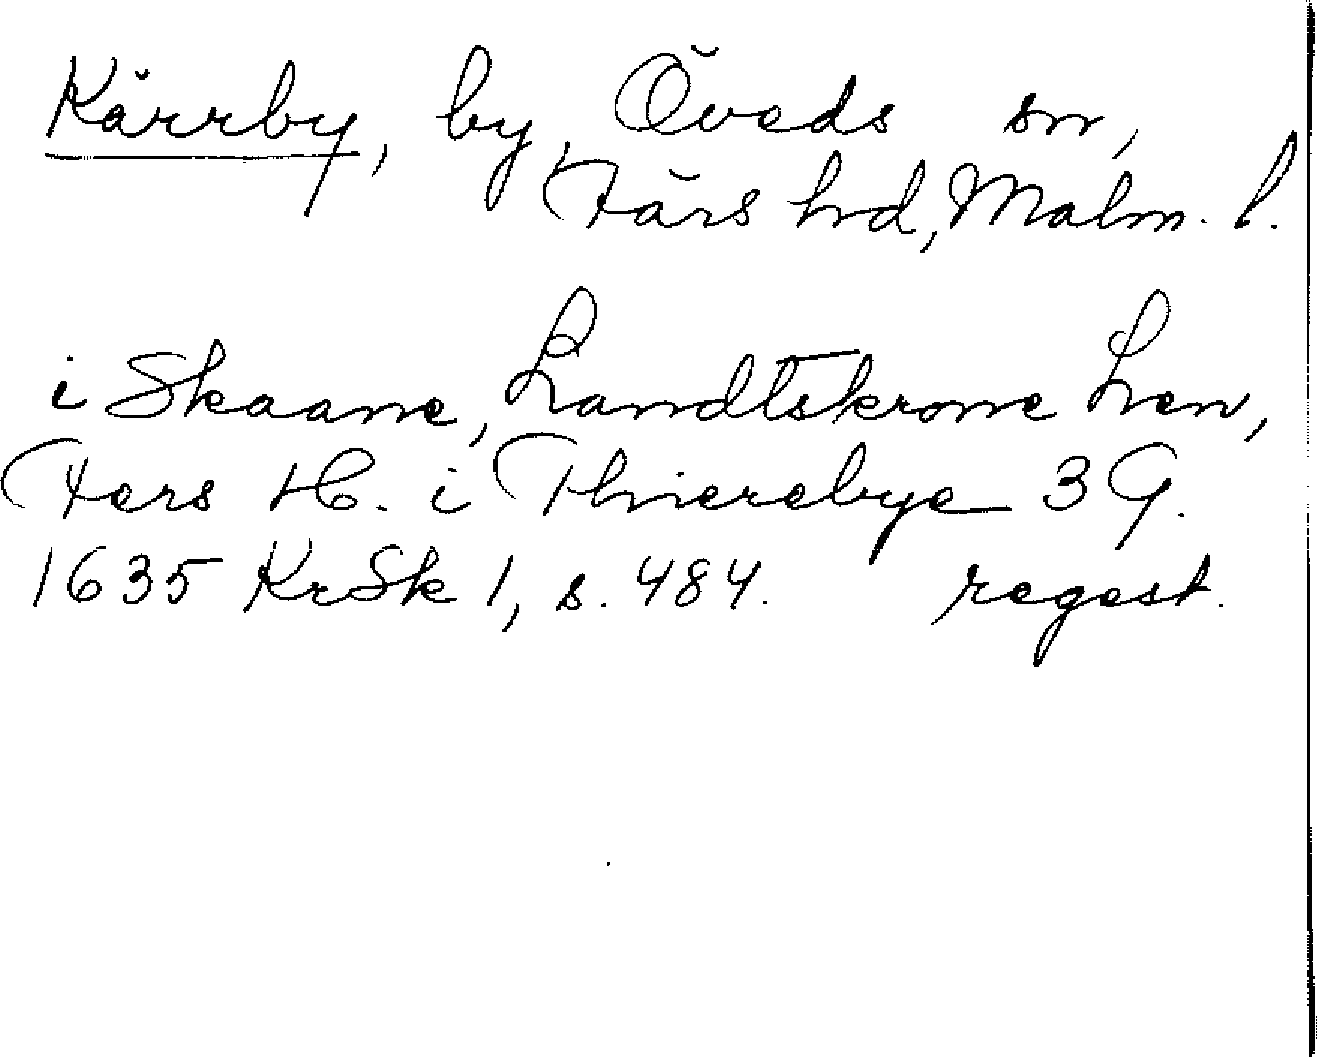 Kärrby, by, Öveds sn,
Färs hrd, Malm. l.
i Skaane, Landtskrone Len,
Fers H. i Thierebye 3 G.
1635 KrSk 1, s. 484. regest.